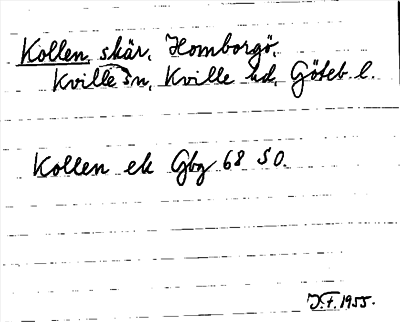 Kollen, skär, Homborgö,
Kville sn, Kville hd, Göteb. l.
Kollen ek Gbg 68 SO.
J.t. 1955.